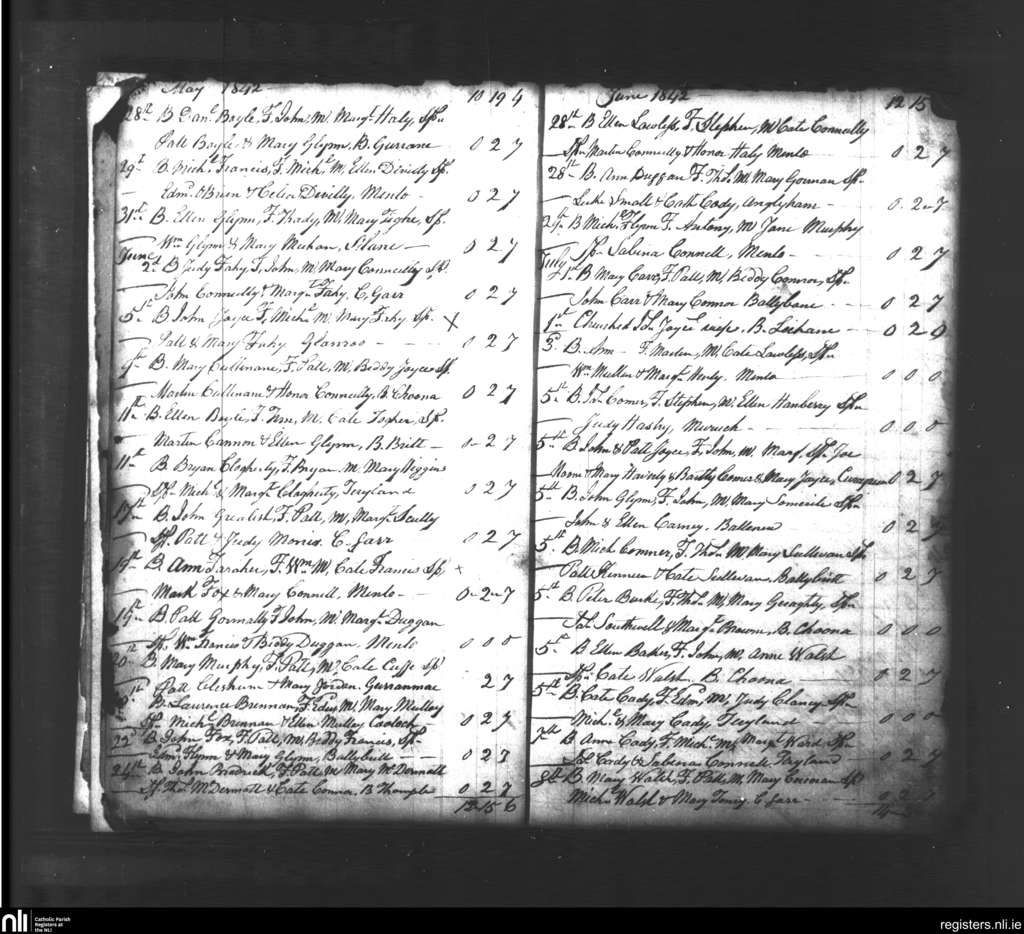 May 1842 10 19 4
28th B Danl Boyle, F, John, M, Margt Haly, Sps
Patt Boyle & Mary Glynn, B. Gurrane 0 2 7
29th B Michl Francis, F, Michl M, Ellen Divilly Sp.
Edmd OBrien & Celia Divilly, Menlo 0 2 7
31st B. Ellen Glynn, F, Thady, M, Mary Tighe, Sp.
Wm Glynn & Mary Mechan, 0 2 7
June
2d B Judy Fahy, F, John, M, Mary Connelly Sp.
John Connelly & Margt Fahy. C, Garr 0 2 7
5th B John Joyce F, Michl M, Mary Fahy Sp. X
Patt & Mary Fahy Glanroo 0 2 7
9th B. Mary Cullinane, F. Patt, M, Biddy Joyce Sp
Marten Cullinane & Honor Connelly, B. Choona 0 2 7
11th B Ellen Boyle, F. Tim, M. Cate Togher, Sp.
Marten Cannon & Ellen Glynn, B. Britt 0 2 7
11th B Bryan Clogherty, F, Bryan M, Mary Higgins
Sps Michl & Margt Clogherty, Teryland 0 2 7
17th B. John Grealish, F, Patt, M, Margt Scully
Sp. Patt & Judy Morris. C. Garr 0 2 7
19th B. Ann Faraher, F, Wm M, Cate Francis Sp, x
Mark Fox & Mary Connell, Menlo 0 2 7
19th B. Patt Gormally, F John, M, Margt Duggan
Sp. Wm Francis & Biddy Duggan, Menlo 0 0 0
20th B. Mary Murphy, F, Patt, M, Cate Cuffe Sp
Patt Cleshum & Mary Jorden. Gurranmac 2 7
B. Laurence Brennan, F, Edw, M, Mary Mulley
Sp. Michl Brennan & Ellen Mulley Cooloch 0 2 7
22d B. John Fox, F, Patt, M, Biddy Francis, Sp
Edm, Flynn & Mary Glynn, Ballybritt 0 2 7
24th B. John Brodrick, F, Patt M, Mary McDermott
Sp. Thos McDermott & Cate Connor, B Thomple 0 2 7
12 15 6
June 1842 12 15
28th B Ellen Lawless, F, Stephen, M, Cate Connelly
Sps Marten Connelly & Honor Haly Menlo 0 2 7
28th B. Ann Duggan F. Thos M, Mary Gorman Sps
Luke Small & Cath Cody, Anglyham 0 2 7
29th B Michl Flynn F. Antony, M, Jane Murphy
Sp. Sabina Connell, Menlo 0 2 7
July 1st B Mary Carr, F, Patt, M, Biddy Connor, Sps
John Carr & Mary Connor Ballybane 0 2 7
1st Churched Joyce B. Lichane 0 2 0
3d B. Ann F. Marten, M, Cate Lawless, Sps
Wm Mullen & Margt Henly, Menlo 0 0 0
5th B Comer, F, Stephen, M, Ellen Hanberry Sps
Judy Hasty, Muruch 0 0 0
5th B John & Patt Joyce, F, John, M. Marg. Sp. Joe
Moore & Mary Hainly & Bartly Comer & Mary Joyce, 0 2 7
5th B. John Glynn, F, John, M, Mary
John & Ellen Carney. 0 2 7
5th B. Mich Commer, F. Thos M, Mary Sullivan Sps
Patt & Cate Sullivan, Ballybritt 0 2 7
5th B. Peter Burke, F, Thos M, Mary Geraghty, Sps
Southwell & Margt Browne, B. Choona 0 0 0
5th B Ellen Baker, F, John, M, Anne Walsh
Sps Cate Walsh. B. Choona 0 2 7
5th B, Cate Cody, F, Edm, M, Judy Clancy Sps
Mich. & Mary Cody, Teryland 0 0 0
7th B Anne Cody, F, Michl M, Margt Ward, Sps
Cody & Sabina Connell Teryland 0 2 7
8th B, Mary Walsh, F, Patt, M, Mary Sp
Michl Walsh & Mary C Garr
nli Catholic Parish
Registers at
the NLI
registers.nli.ie